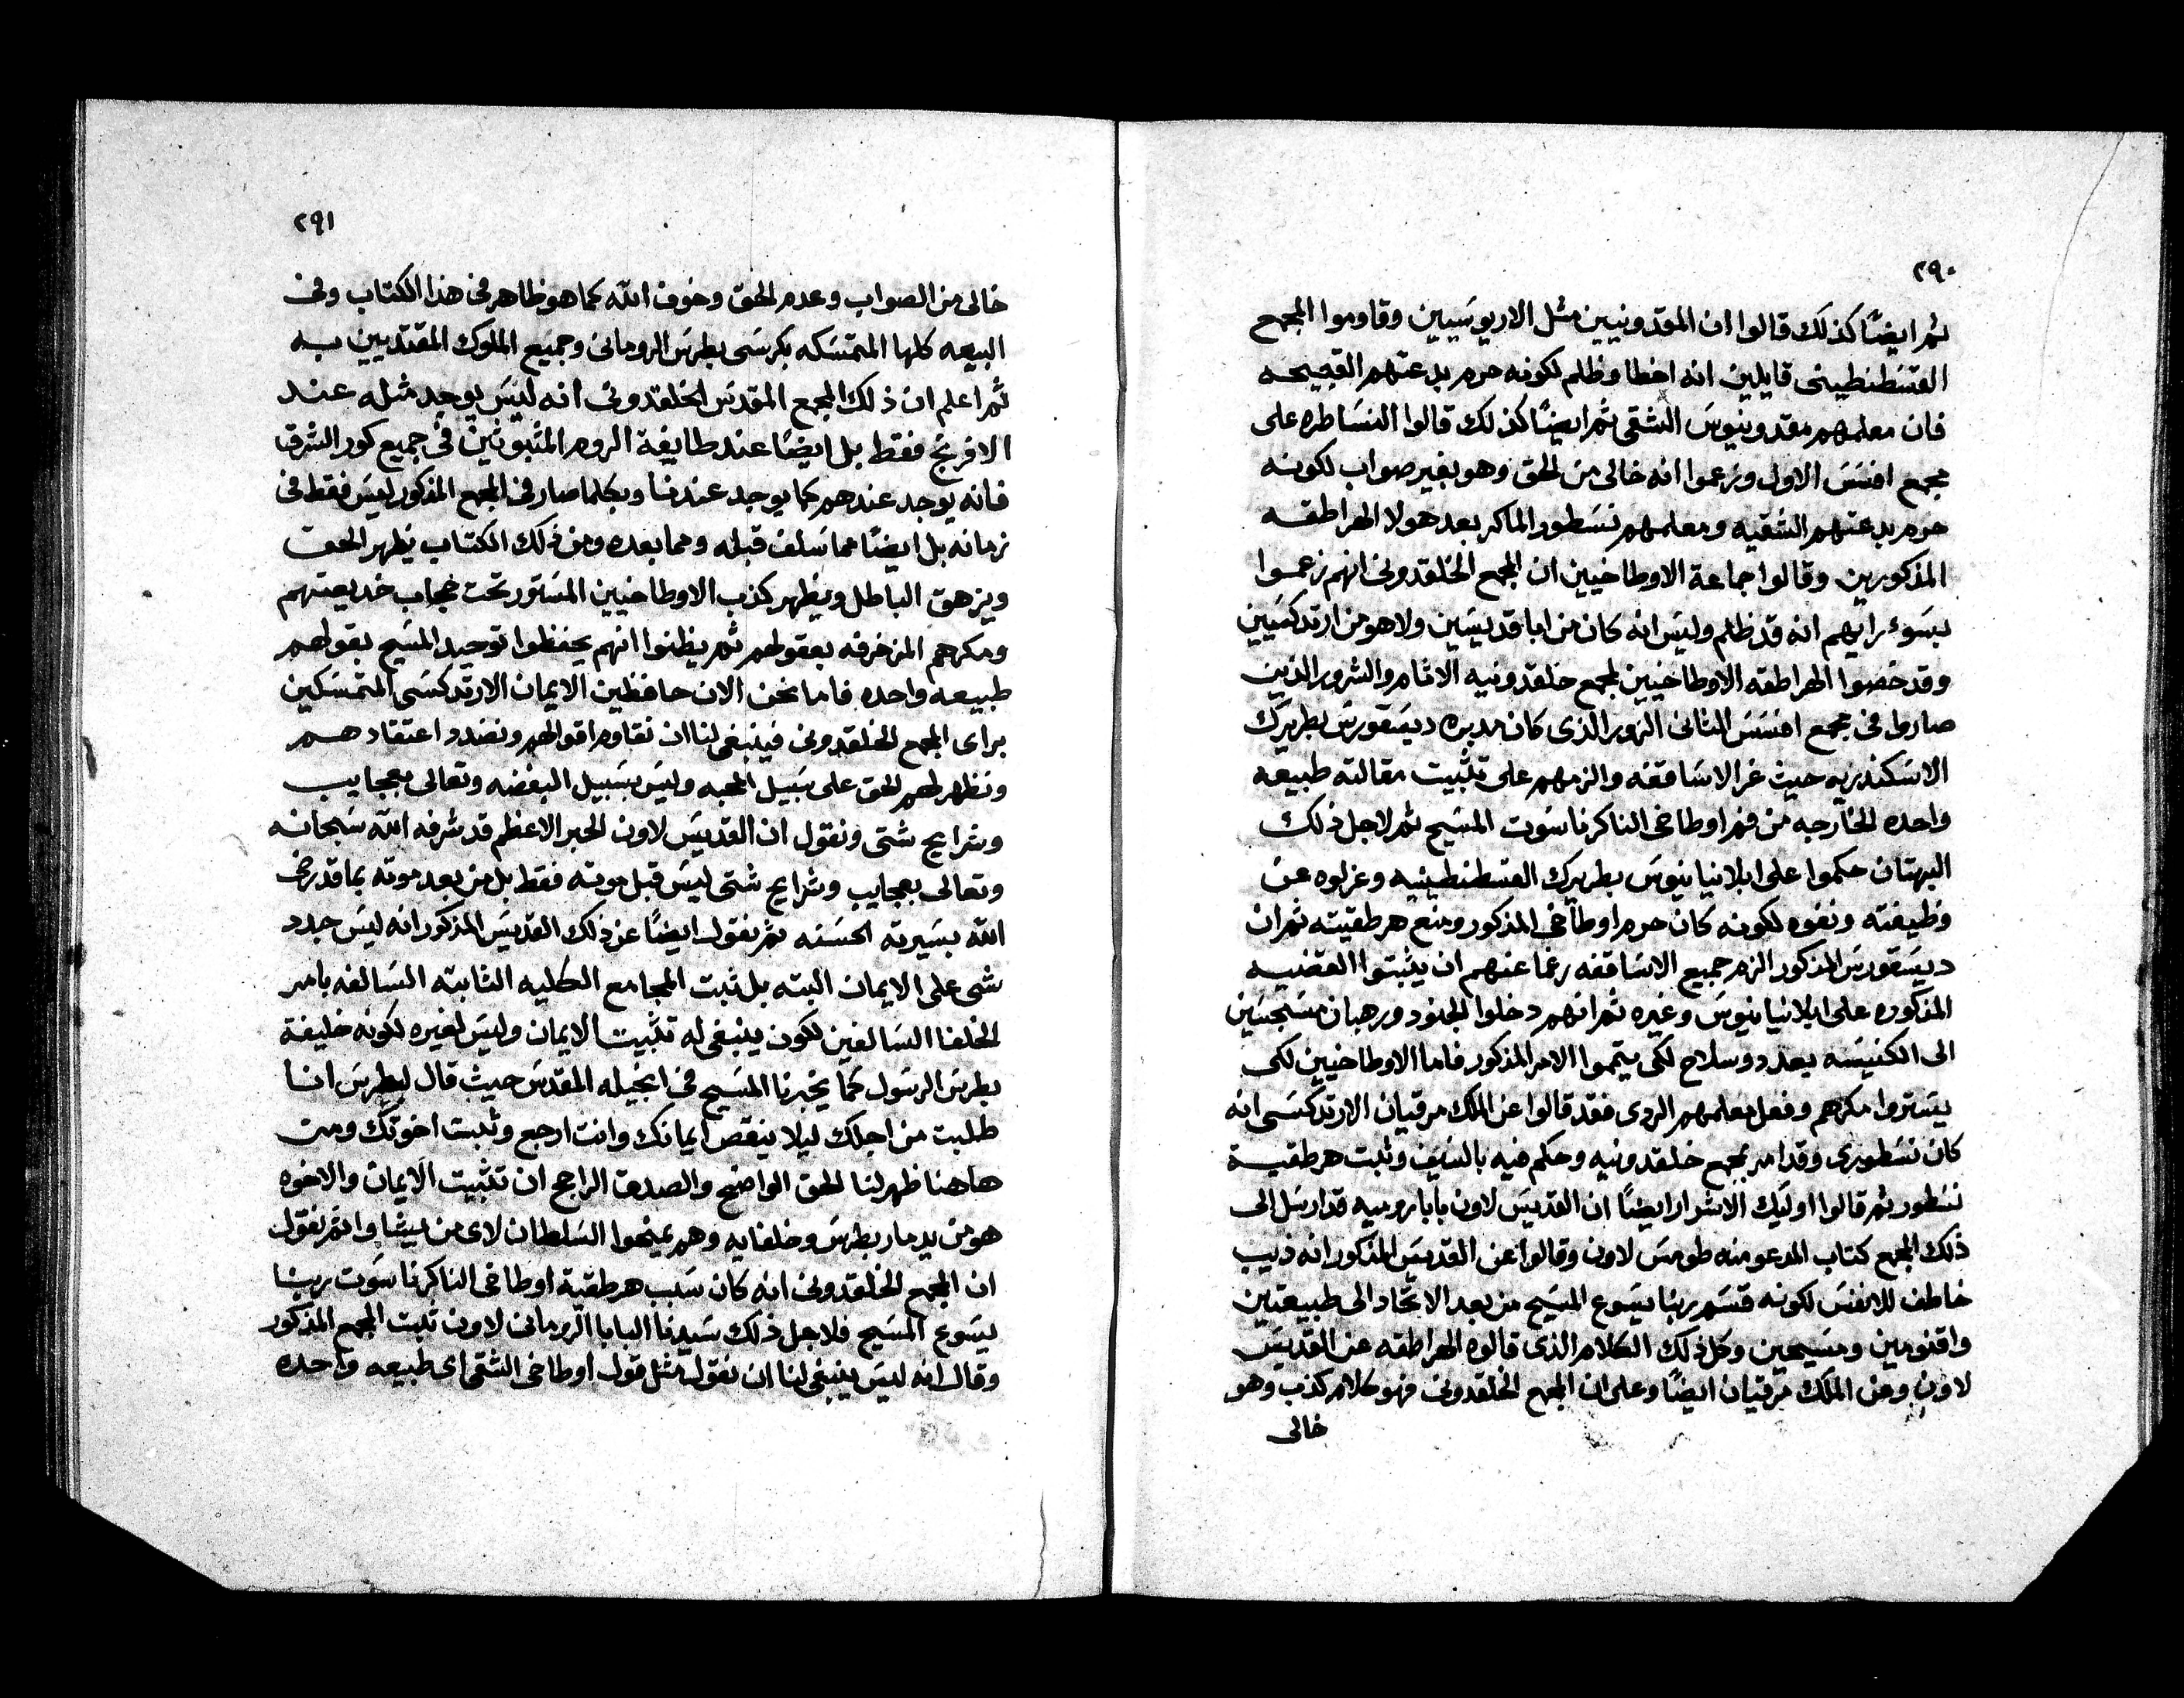 ٢٩٠
ثم ايضًا كذلك قالوا ان المقدونيين مثل الاريوسيين وقاوموا المجمع
القسطنطينى قايلين انه اخطا وظلم لكونه حرم بدعتهم القبيحه
فان معلمهم مقدونيوس الشقى ثم ايضًا كذلك قالوا النساطره على
مجمع افسس الاول وزعموا انه خالى من الحق وهو بغير صواب لكونه
حرم بدعتهم الشقيه ومعلمهم نسطور الماكر بعد هولا الهراطقه
المذكورين وقالوا جماعة الاوطاخيين ان المجمع الخلقدونى انهم زعموا
بسوء رايهم انه قد ظلم وليس انه كان من ابا قديسين ولا هو من ارتدكسيين
وقد خصوا الهراطقه الاوطاخيين لمجمع خلقدونيه الاثام والشرور الذين
صاروا فى مجمع افسس الثانى الزور الذى كان مدبره ديسقورس بطريرك
الاسكندريه حيث غر الاساقفه والزمهم على تثبيت مقالته طبيعه
واحده الخارجه من فم اوطاخى الناكر ناسوت المسيح ثم لاجل ذلك
البهتان حكموا على ابلانيانيوس بطريرك القسطنطينيه وعزلوه عن
وظيفته ونفوه لكونه كان حرم اوطاخى المذكور ومنع هرطقيته ثم ان
ديسقورس المذكور الزم جميع الاساقفه رغمًا عنهم ان يثبتوا القضيه
المذكوره على ابلانيانيوس وغيره ثم انهم دخلوا الجنود ورهبان مسجسين
الى الكنيسه بعدد وسلاح لكى يتمموا الامر المذكور فاما الاوطاخيين لكى
يستروا مكرهم وفعل معلمهم الردى فقد قالوا عن الملك مرقيان الارتدكسى انه
كان نسطورى وقد امر بمجمع خلقدونيه وحكم فيه بالسيف وثبت هرطقية
نسطور ثم قالوا اوليك الاشرار ايضًا ان القديس لاون بابا روميه قد ارسل الى
ذلك المجمع كتاب المدعو منه طومس لاون وقالوا عن القديس المذكور انه ديب
خاطف للانفس لكونه قسم ربنا يسوع المسيح من بعد الاتحاد الى طبيعتين
واقنومين ومسيحين وكل ذلك الكلام الذى قالوه الهراطقه عن القديس
لاون وعن الملك مرقيان ايضًا وعلى ان المجمع الخلقدونى فهو كلام كذب وهو
خالى
٢٩١
خالى من الصواب وعدم الحق وخوف الله كما هو ظاهر فى هذا الكتاب وفى
البيعه كلها المتمسكه بكرسى بطرس الرومانى وجميع الملوك المقتديين به
ثم اعلم ان ذلك المجمع المقدس الخلقدونى انه ليس يوجد مثله عند
الافرنج فقط بل ايضًا عند طايفة الروم المثبوتين فى جميع كور الشرق
فانه يوجد عندهم كما يوجد عندنا وبكلما صار فى المجمع المذكور ليس فقط فى
زمانه بل ايضًا مما سلف قبله ومما بعده ومن ذلك الكتاب يظهر الحق
ويزهق الباطل ويظهر كذب الاوطاخيين المستور تحت حجاب خديعتهم
ومكرهم المزخرفه بعقولهم ثم يظنوا انهم يحفظوا توحيد المسيح بقولهم
طبيعه واحده فاما نحن الان حافظين الايمان الارتدكسى المتمسكين
براى المجمع الخلقدونى فينبغى لنا ان نقاوم اقوالهم ونضدد اعتقادهم
ونظهر لهم الحق على سبيل المحبه وليس بسبيل البغضه وتعالى بعجايب
وشرايح شتى ونقول ان القديس لاون الحبر الاعظم قد شرفه الله سبحانه
وتعالى بعجايب وشرايح شتى ليس قبل موته فقط بل من بعد موته بما قد رضى
الله بسيرته الحسنه ثم نقول ايضًا عن ذلك القديس المذكور انه ليس جدد
شى على الايمان البته بل ثبت المجامع الكليه الثابته السالفه بامر
الخلفا السالفين لكون ينبغى له تثبيت الايمان وليس لغيره لكونه خليفة
بطرس الرسول كما يخبرنا المسيح فى انجيله المقدس حيث قال لبطرس انا
طلبت من اجلك ليلا ينقص ايمانك وانت ارجع وثبت اخوتك ومن
هاهنا ظهر لنا الحق الواضح والصدق الراجح ان تثبيت الايمان والاخوه
هو من يد مار بطرس وخلفايه وهم يمنحوا السلطان لاى من يشاوا ثم نقول
ان المجمع الخلقدونى انه كان سبب هرطقية اوطاخى الناكر ناسوت ربنا
يسوع المسيح فلاجل ذلك سيدنا البابا الرومانى لاون ثبت المجمع المذكور
وقال انه ليس ينبغى لنا ان نقول مثل قول اوطاخى الشقى اى طبيعه واحده